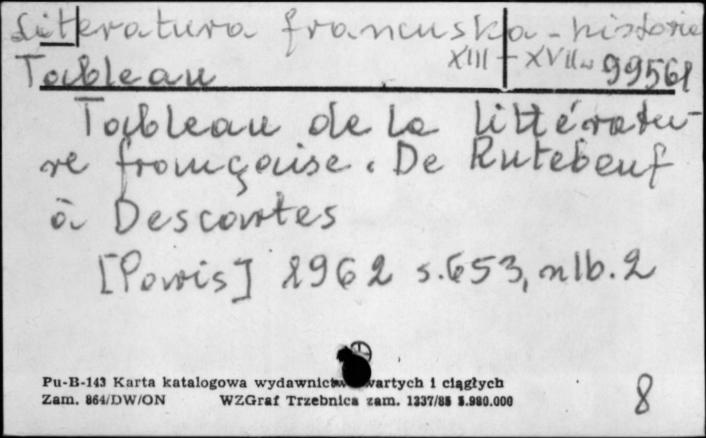 Literatura francuska - historia
XIII - XVII w. 99561
Tableau
Tableau de la littératu-
re française. De Rutebeuf
à Descartes
[Paris] 1962 s. 653, nlb. 2
Pu-B-143 Karta katalogowa wydawnictw zwartych i ciągłych
Zam. 864/DW/ON WZGraf Trzebnica zam. 1337/85 5.980.000
8